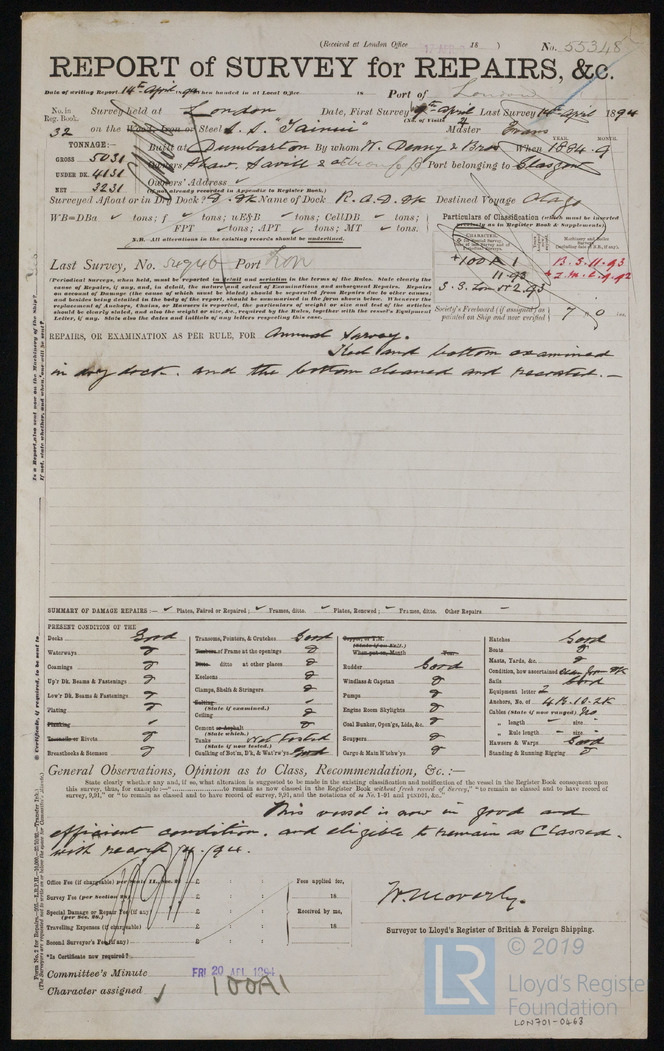 (Received at London Office 18 )
No. 55348
REPORT of SURVEY for REPAIRS, &c.
Date of writing Report 14th April 1894 when handed in at Local Office 18 Port of London
No. in Reg. Book. Survey held at London Date, First Survey 9th April Last Survey 14th April 1894
(No. of Visits 2
32 on the Wood, Iron or Steel S. S. "Tainui" Master Evans
TONNAGE:— Built at Dumbarton By whom W. Denny & Bros When 1884.9
YEAR. MONTH.
GROSS 5031
Owners Shaw, Savill & Albion Co Ld Port belonging to Glasgow
UNDER DK. 4131
NET 3231 Owners' Address
(if not already recorded in Appendix to Register Book.)
Surveyed Afloat or in Dry Dock? D. Dk Name of Dock R. A. D. Dk Destined Voyage Otago
WB=DBa tons; f tons; uE&B tons; CellDB tons;
FPT tons; APT tons; MT tons.
N.B.—All alterations in the existing records should be underlined.
Particulars of Classification (which must be inserted precisely as in Register Book & Supplements).
+100A1 B.S. 11.93
11.93 + L.M.C. 9.92
S. S. Lon 2.93
Society's Freeboard (if assigned) as painted on Ship and now verified 7 0 ins.
Last Survey, No. 54946 Port Lon
(Periodical Surveys, when held, must be reported in detail and seriatim in the terms of the Rules. State clearly the
cause of Repairs, if any, and, in detail, the nature and extent of Examinations and subsequent Repairs. Repairs
on account of Damage (the cause of which must be stated) should be separated from Repairs due to other causes;
and besides being detailed in the body of the report, should be summarised in the form shown below. Whenever the
replacement of Anchors, Chains, or Hawsers is reported, the particulars of weight or size and test of the articles
should be clearly stated, and also the weight or size, &c., required by the Rules, together with the vessel's Equipment
Letter, if any. State also the dates and initials of any letters respecting this case.
REPAIRS, OR EXAMINATION AS PER RULE, FOR Annual Survey.
Keel and bottom examined
in dry dock. and the bottom cleaned and recoated.—
SUMMARY OF DAMAGE REPAIRS:— Plates, Faired or Repaired; Frames, ditto. Plates, Renewed; Frames, ditto. Other Repairs
PRESENT CONDITION OF THE
Decks Good
Waterways
Coamings
Up'r Dk. Beams & Fastenings
Low'r Dk. Beams & Fastenings
Plating
Planking
Treenails or Rivets
Breasthooks & Stemson
Transoms, Pointers, & Crutches Good
Timbers of Frame at the openings
Ditto. ditto at other places
Keelsons
Clamps, Shelfs & Stringers
Salting
(State if examined.)
Ceiling
Cement or Asphalt
(State which.)
Tanks Not tested
(State if now tested.)
Caulking of Bot'm, D'k, & Wat'rw'ys Good
Copper or Y.M.
(State if on Felt.)
When put on, Month Year
Rudder Good
Windlass & Capstan
Pumps
Engine Room Skylights
Coal Bunker, Open'gs, Lids, &c.
Scuppers
Cargo & Main H'tchw'ys
Hatches Good
Boats
Masts, Yards, &c.
Condition, how ascertained
Sails Good
Equipment letter
Anchors, No. of 4B. 1S. 2K
Cables (State if now ranged) No
" length — size
" Rule length — size
Hawsers & Warps Good
Standing & Running Rigging
General Observations, Opinion as to Class, Recommendation, &c.:—
State clearly whether any and, if so, what alteration is suggested to be made in the existing classification and notification of the vessel in the Register Book consequent upon
this survey, thus, for example:—" to remain as now classed in the Register Book without fresh record of Survey," "to remain as classed and to have record of
survey, 9,91," or "to remain as classed and to have record of survey, 9,91, and the notations of ss No. 1-91 and ptND91, &c."
This vessel is now in good and
efficient condition. and eligible to remain as Classed.
with record 4.94.
Office Fee (if chargeable) per Scale II., Sec. 2 £ : : Fees applied for,
Survey Fee (per Section 28) £ : : 18
Special Damage or Repair Fee (if any) £ : : Received by me,
(per Sec. 28.)
Travelling Expenses (if chargeable) £ : : 18
Second Surveyor's Fee (if any) £ : :
*Is Certificate now required?
W. Moverly.
Surveyor to Lloyd's Register of British & Foreign Shipping.
Committee's Minute FRI 20 APL 1894
Character assigned 100A1
LR
© 2019
Lloyd's Register
Foundation
LON701-0463